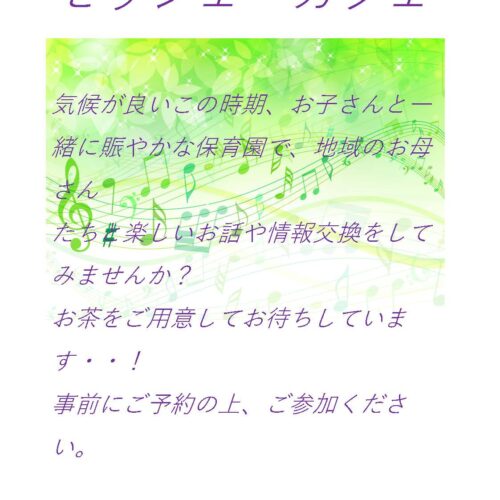 気候が良いこの時期、お子さんと一
緒に賑やかな保育園で、地域のお母
さん
たちと楽しいお話や情報交換をして
みませんか？
お茶をご用意してお待ちしていま
す・・！
事前にご予約の上、ご参加くださ
い。